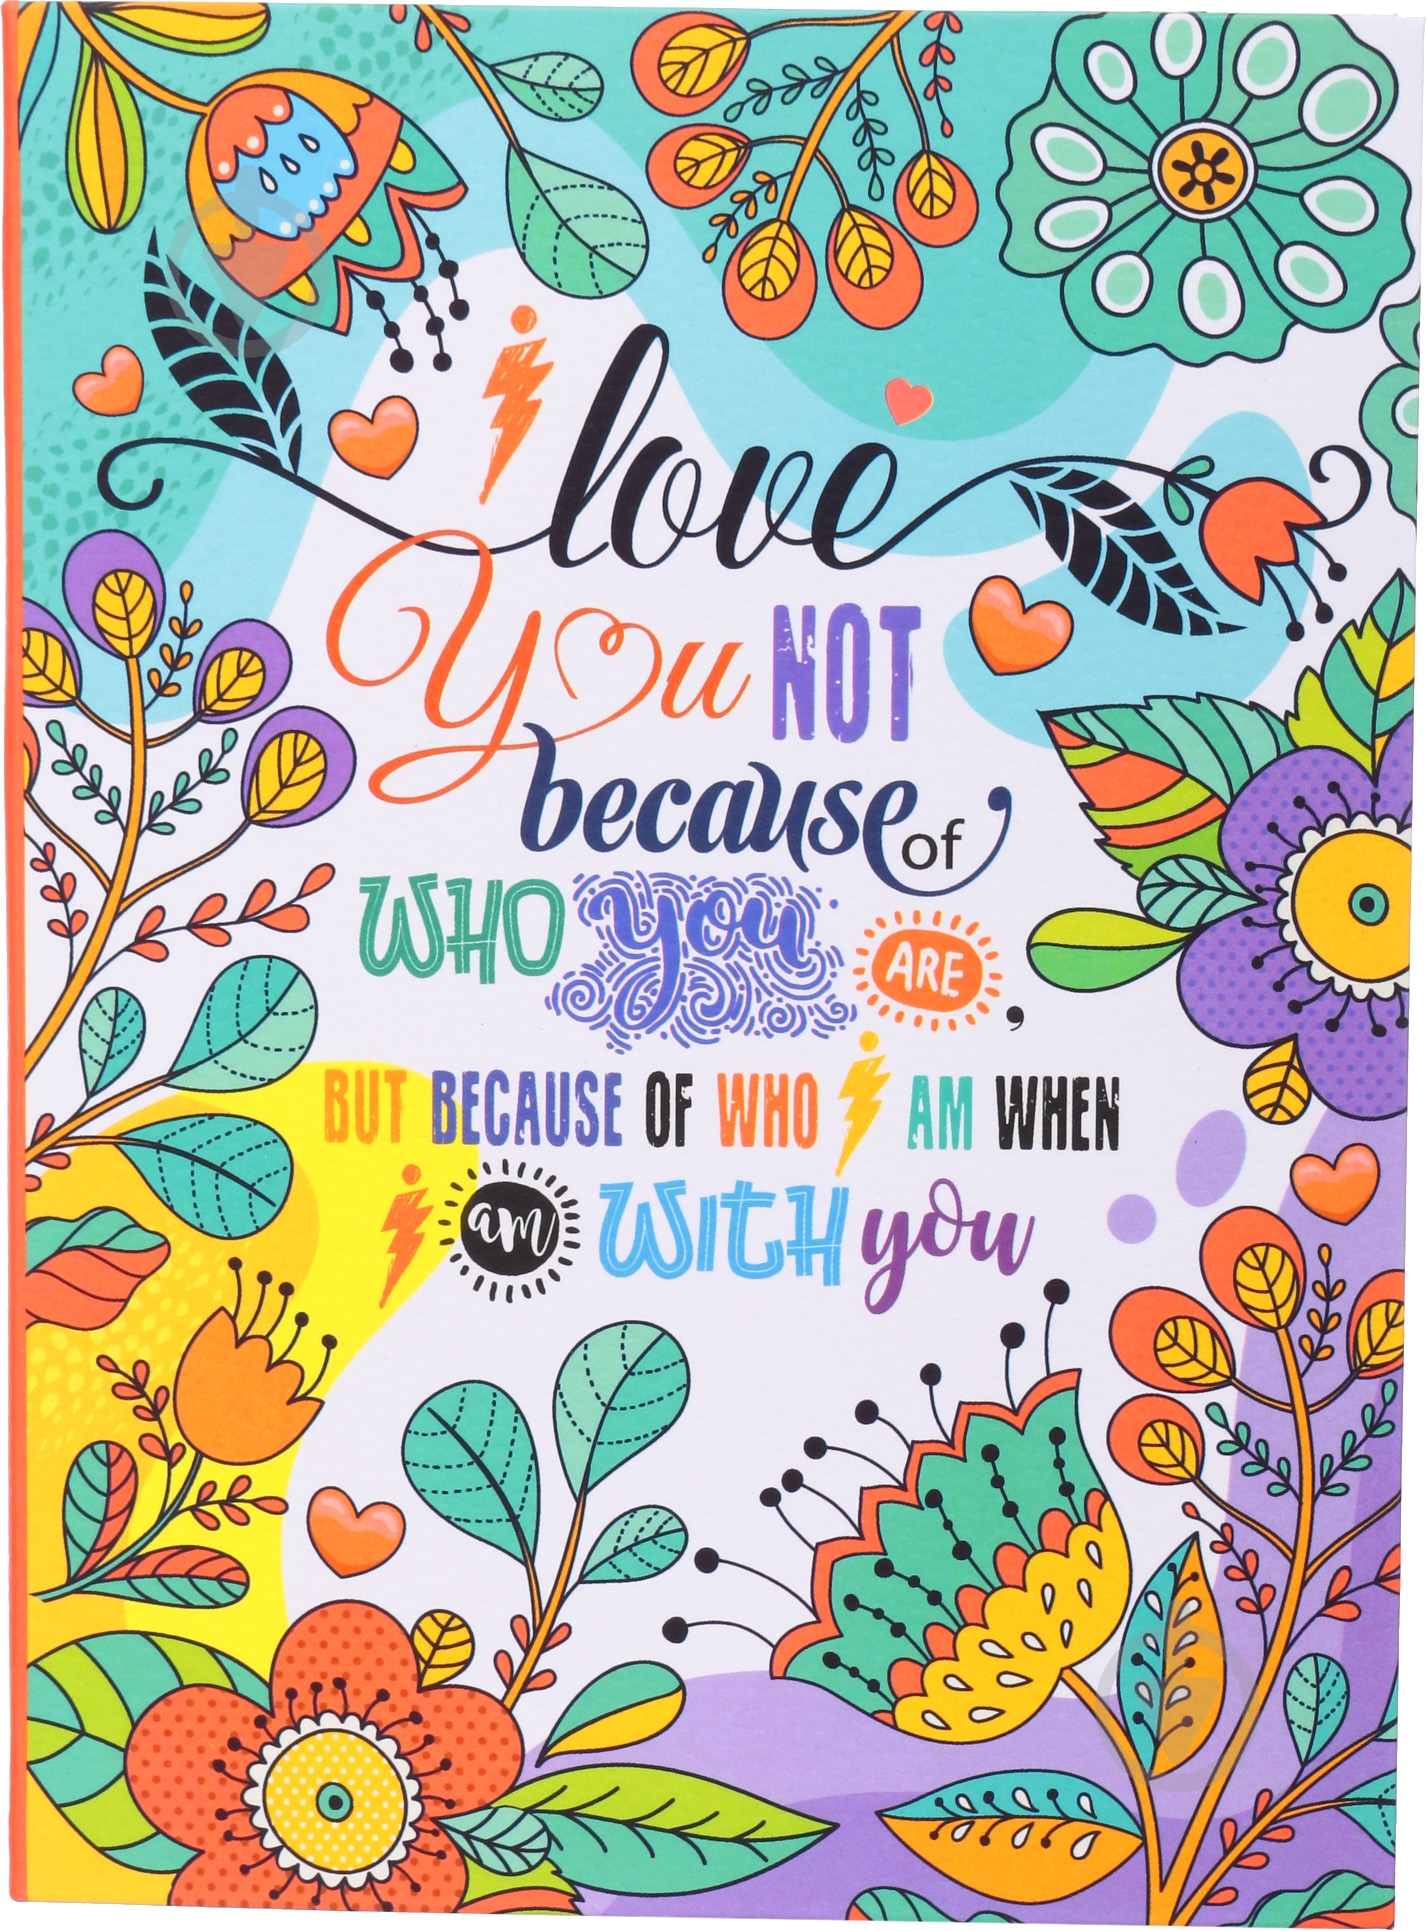 i love
You NOT
because of
WHO you ARE,
BUT BECAUSE OF WHO i AM WHEN
i am WITH you